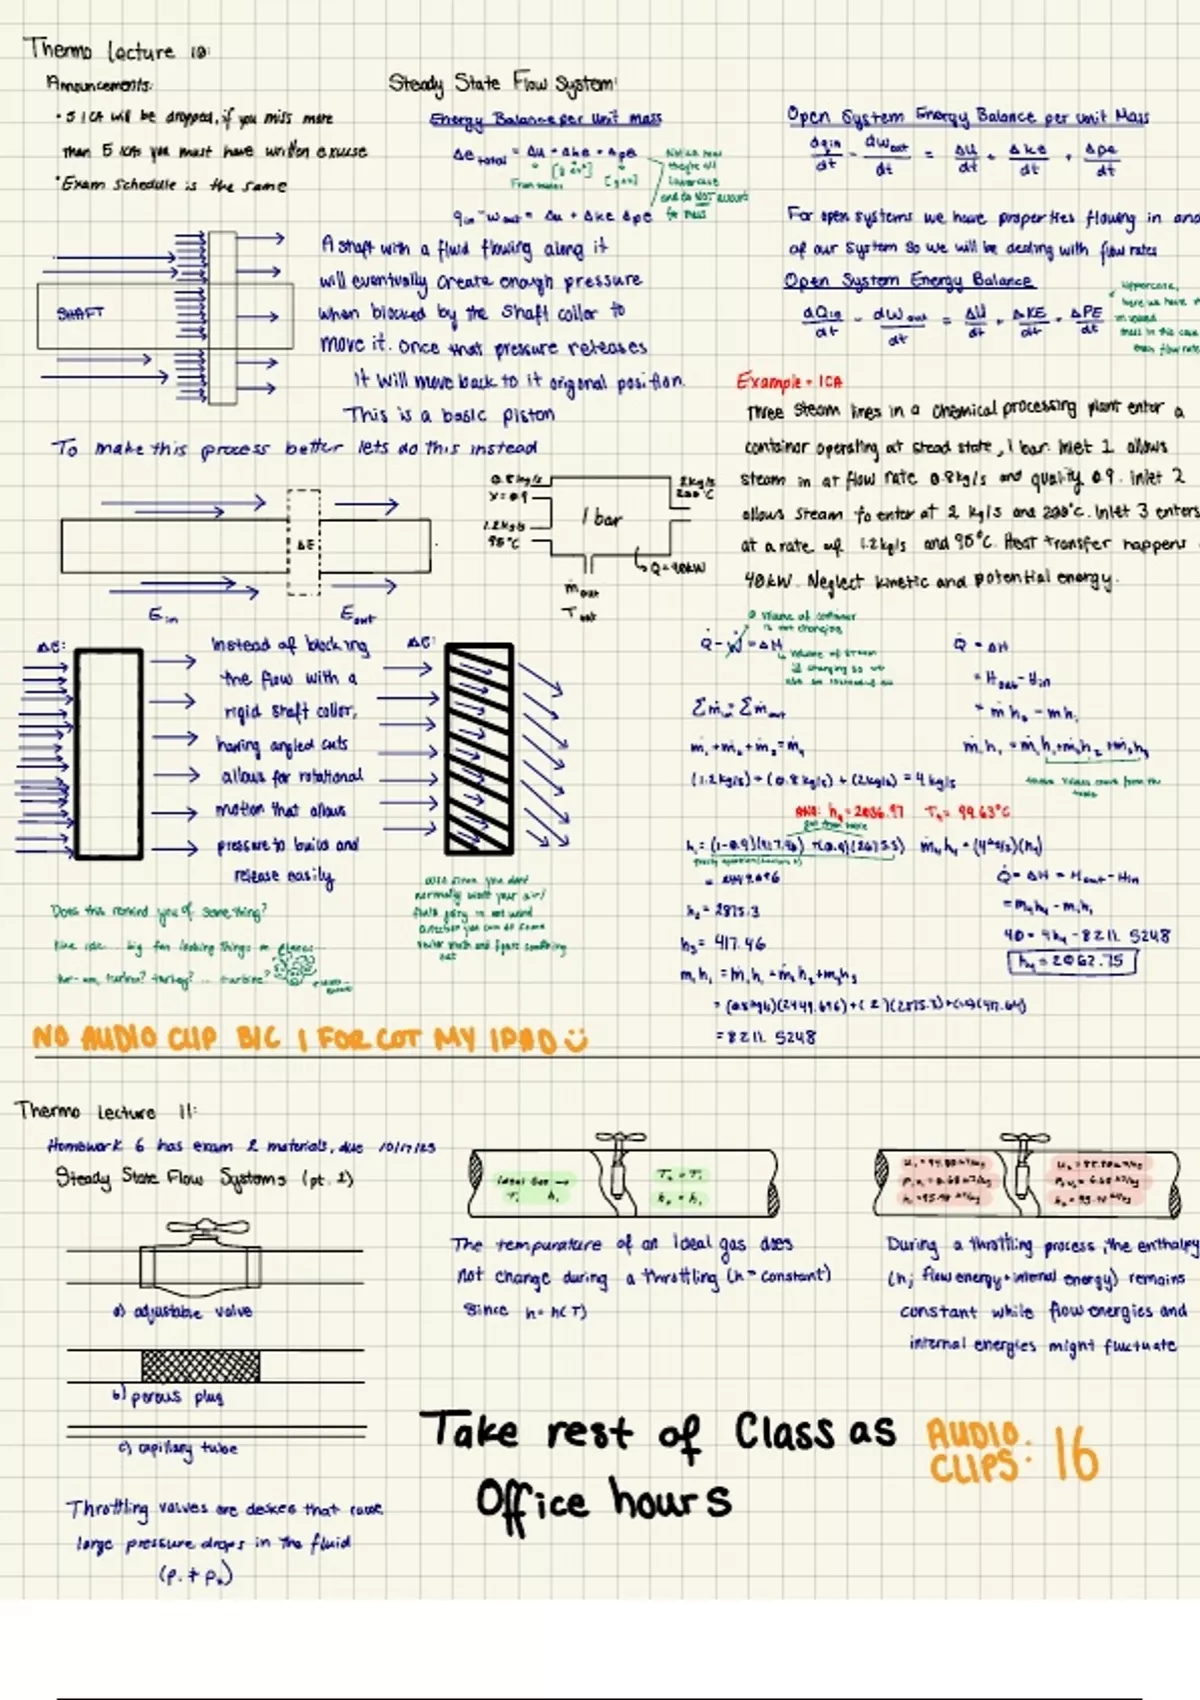 Thermo Lecture 10:
Announcements:
• 5 ICA will be dropped, if you miss more
than 5 ICAs you must have written excuse
• Exam schedule is the same
Steady State Flow System:
Energy Balance per Unit mass
Δe total = Δu + Δke + Δpe
From tables
q in - w out = Δu + Δke Δpe
Notice how
they're all
lowercase
and do NOT account
for mass
Open System Energy Balance per Unit Mass
dq in/dt - dw out/dt = Δu/dt + Δke/dt + Δpe/dt
For open systems we have properties flowing in and
of our system so we will be dealing with flow rates
Open System Energy Balance
dQ in/dt - dW out/dt = ΔU/dt + ΔKE/dt + ΔPE/dt
Uppercase,
SHAFT
A shaft with a fluid flowing along it
will eventually create enough pressure
when blocked by the shaft collar to
move it. Once that pressure releases
it will move back to it orignal position.
This is a basic piston
To make this process better lets do this instead
ΔE
E in
E out
0.8 kg/s
x=0.9
1.2kg/s
95°C
1 bar
2kg/s
200°C
Q=40kW
ṁ out
T out
Example - ICA
Three steam lines in a chemical processing plant enter a
container operating at stead state, 1 bar. Inlet 1 allows
steam in at flow rate 0.8kg/s and quality 0.9. Inlet 2
allows steam to enter at 2 kg/s and 200°C. Inlet 3 enters
at a rate of 1.2kg/s and 95°C. Heat transfer happens
40kW. Neglect kinetic and potential energy.
ΔE:
Instead of blocking
the flow with a
rigid shaft collar,
having angled cuts
allows for rotational
motion that allows
pressure to build and
release easily
ΔE:
Volume of container
is not changing
Q̇ - Ẇ = ΔH
Volume of steam
is changing so we
Σṁ in = Σṁ out
ṁ₁ + ṁ₂ + ṁ₃ = ṁ₄
(1.2kg/s) + (0.8kg/s) + (2kg/s) = 4 kg/s
Q̇ = ΔH
= H out - H in
= ṁ h₀ - ṁ hᵢ
ṁᵢhᵢ = ṁ₁h₁ + ṁ₂h₂ + ṁ₃h₃
ANS: h₄ = 2036.97 T₄ = 99.63°C
h₁ = (1-0.9)(417.46) + (0.9)(2675.5)
= 2449.696
h₂ = 2875.3
h₃ = 417.46
ṁᵢhᵢ = ṁ₁h₁ + ṁ₂h₂ + ṁ₃h₃
= 8211.5248
ṁ₄h₄ = (4kg/s)(h₄)
Q̇ = ΔH = H out - H in
= ṁ₄h₄ - ṁᵢhᵢ
40 = 4h₄ - 8211.5248
h₄ = 2062.75
Does this remind you of something?
big fan looking things on planes...
turbine?
NO AUDIO CLIP B/C I FORGOT MY IPAD
Thermo Lecture 11:
Homework 6 has exam 2 materials, due 10/17/25
Steady State Flow Systems (pt. 2)
a) adjustable valve
b) porous plug
c) capillary tube
Throttling valves are devices that cause
large pressure drops in the fluid
Ideal Gas →
T₁ h₁
T₂ = T₁
h₂ = h₁
The tempurature of an Ideal gas does
not change during a throttling (h = constant)
since h = h(T)
During a throttling process, the enthalpy
(h; flow energy + internal energy) remains
constant while flow energies and
internal energies might fluctuate
Take rest of Class as
Office hours
AUDIO
CLIPS: 16